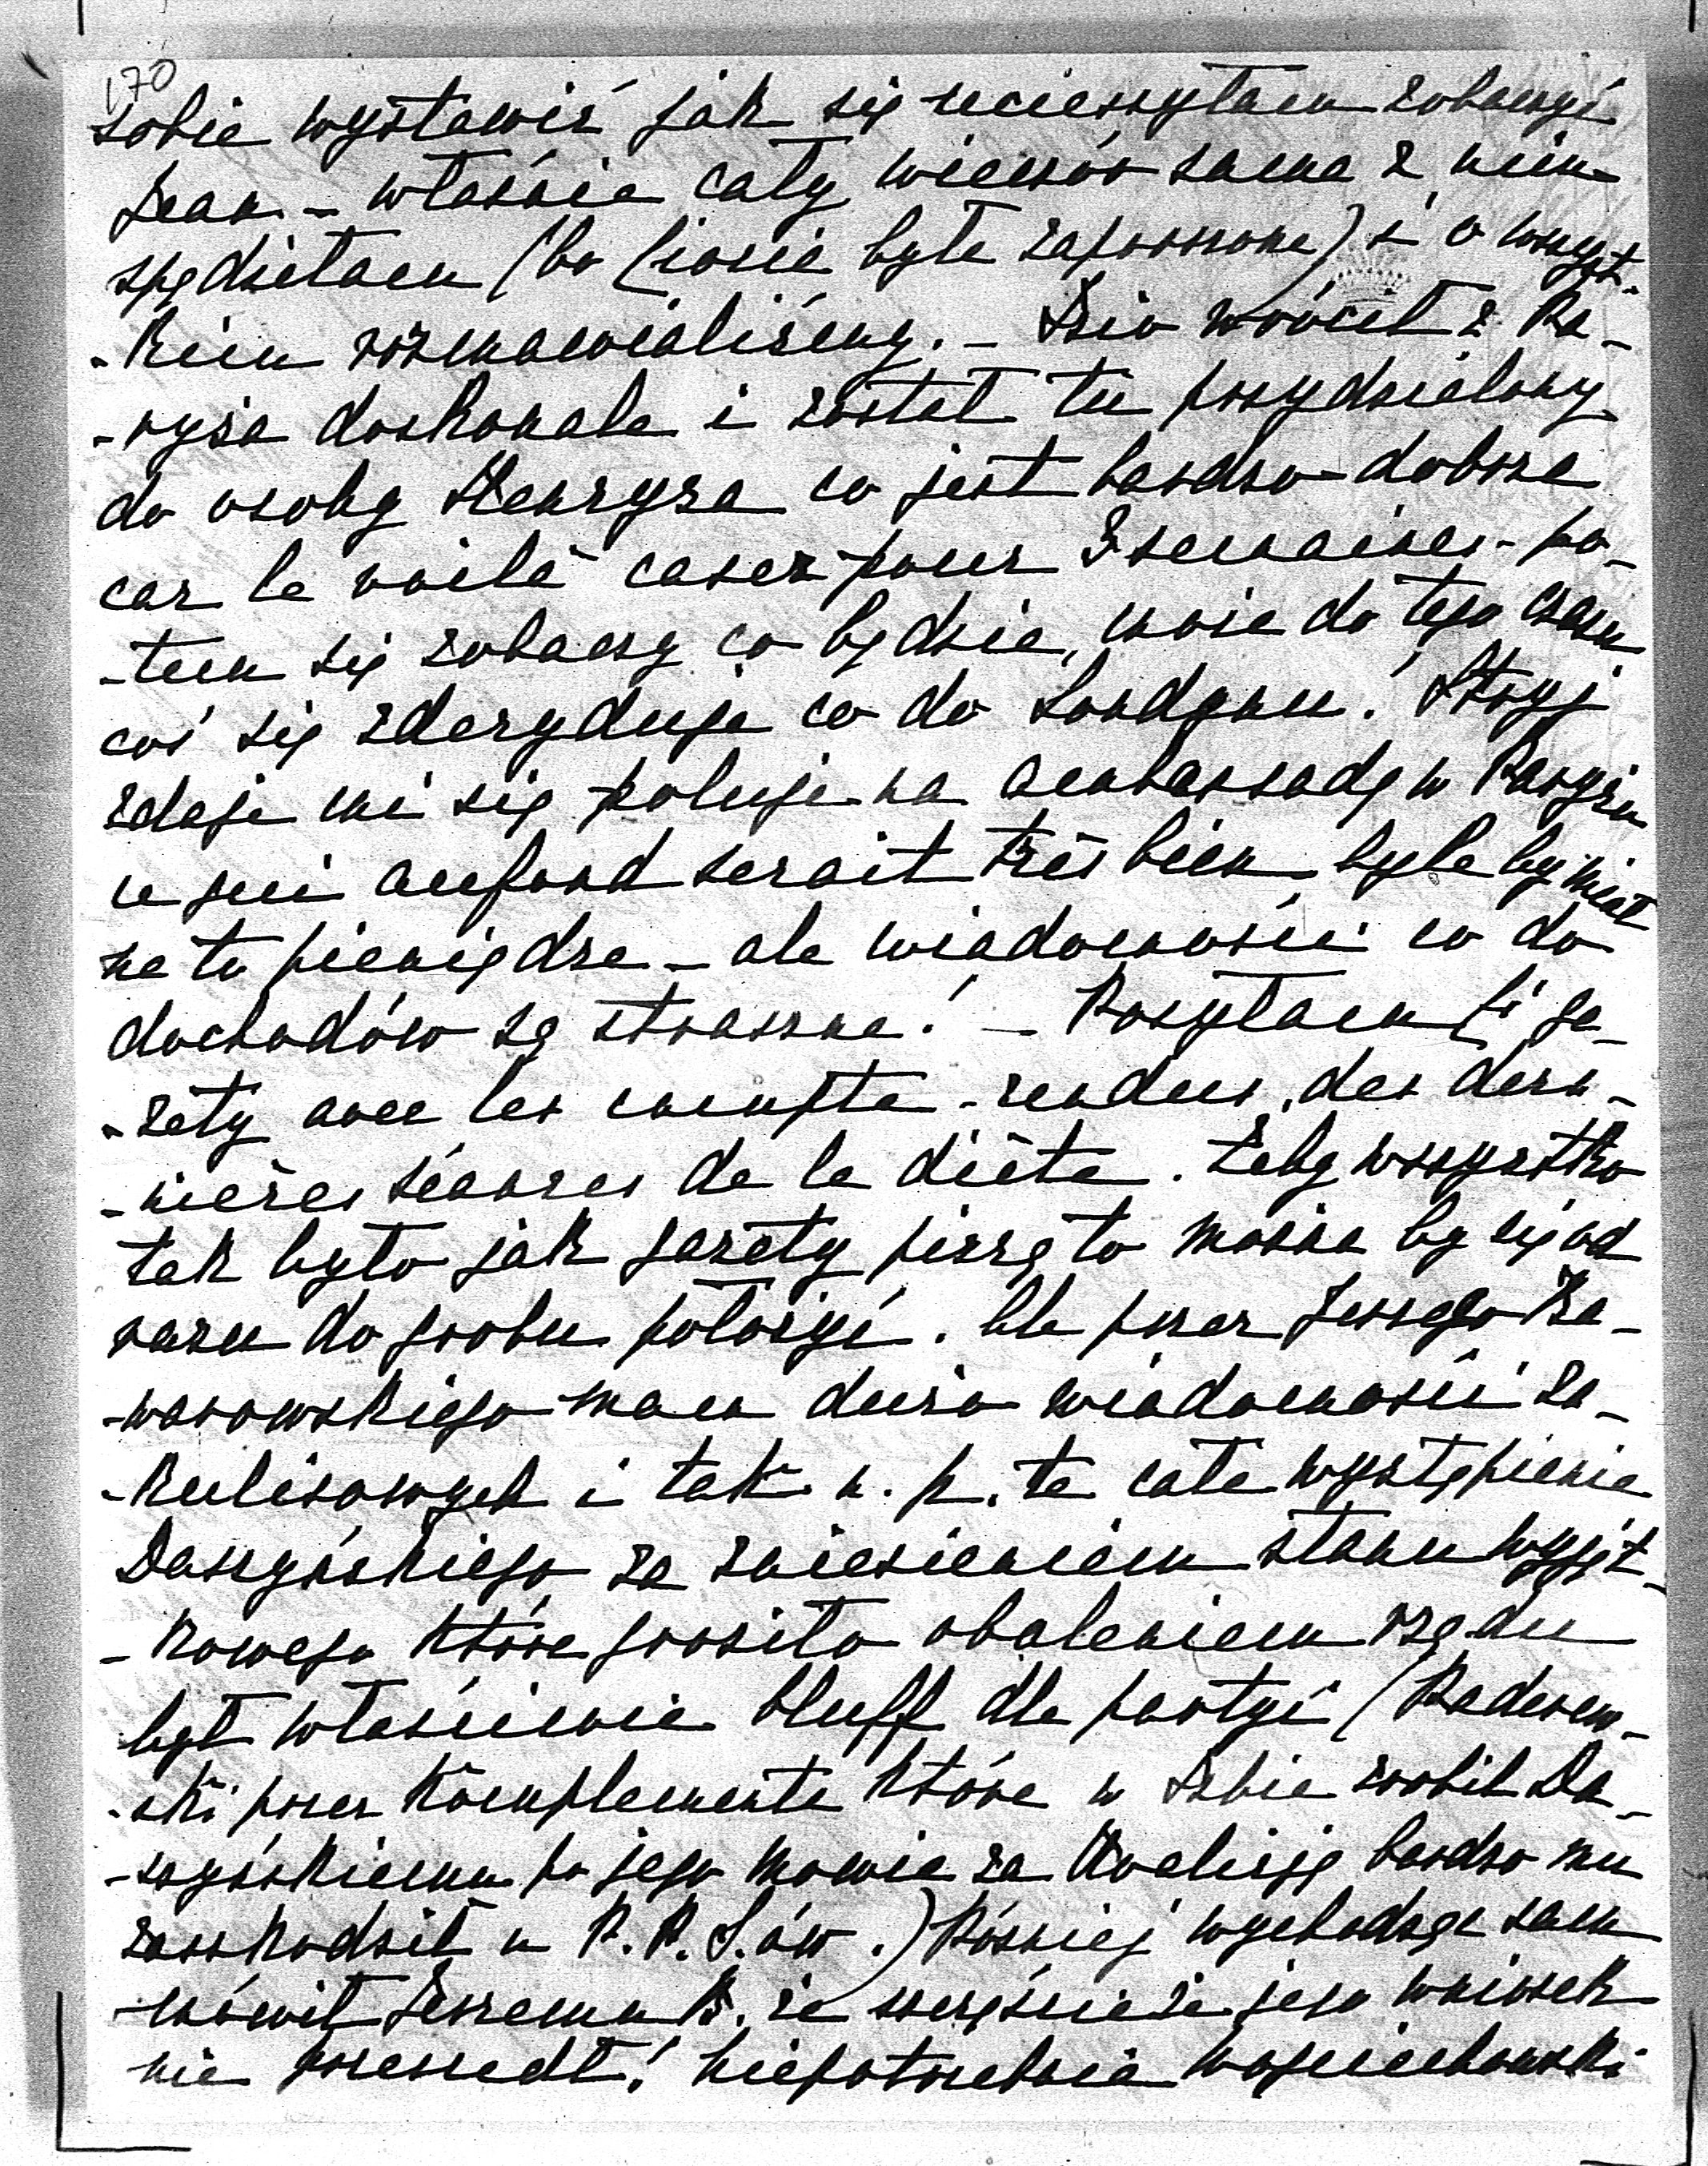 170
sobie wystawić jak się ucieszyłam zobaczyć
Jean – właśnie cały wieczór sama z nim
spędziłam (bo Ciocie była zaproszone) i o wszyst-
-kiem rozmawialiśmy. – Dzio wrócił z Pa-
-ryża doskonale i został tu przydzielony
do osoby Henrysa co jest bardzo dobrze
car le voilà caser pour 3 semaines – po-
-tem się zobaczy co będzie, może do tego czasu
coś się zdecyduje co do Londynu! Stryj
zdaje mi się poluje na ambassadę w Paryżu
ce qui au fond serait très bien byle by miał
na to pieniędze – ale wiadomości co do
dochodów są straszne! – Posyłam Ci ga-
-zety avec les compte-rendus des der-
-nières séances de la diète. Żeby wszystko
tak było jak gazety piszą to można by się od
razu do grobu położyć. Ale przez Jerzego
-warowskiego mam dużo wiadomości za-
-kulisowych i tak n. p. te całe wystąpienie
Daszyńskiego za zniesieniem stanu wyjąt-
-kowego które groziło obaleniem rządu
był właściwie bluff dla partyi (Paderew-
-ski przez komplementa które w Izbie zrobił Da-
-szyńskiemu po jego mowie za Koalicję bardzo mu
zaszkodził u P. P. S. ów.) Później wychodząc sam
mówił Jerzemu B. że szczęście że jego wniosek
nie przeszedł! Niepotrzebnie Wojciechowski